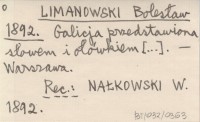 LIMANOWSKI Bolesław
1892. Galicja przedstawiona
słowem i ołówkiem [...]. —
Warszawa.
Rec.: NAŁKOWSKI W.
1892.